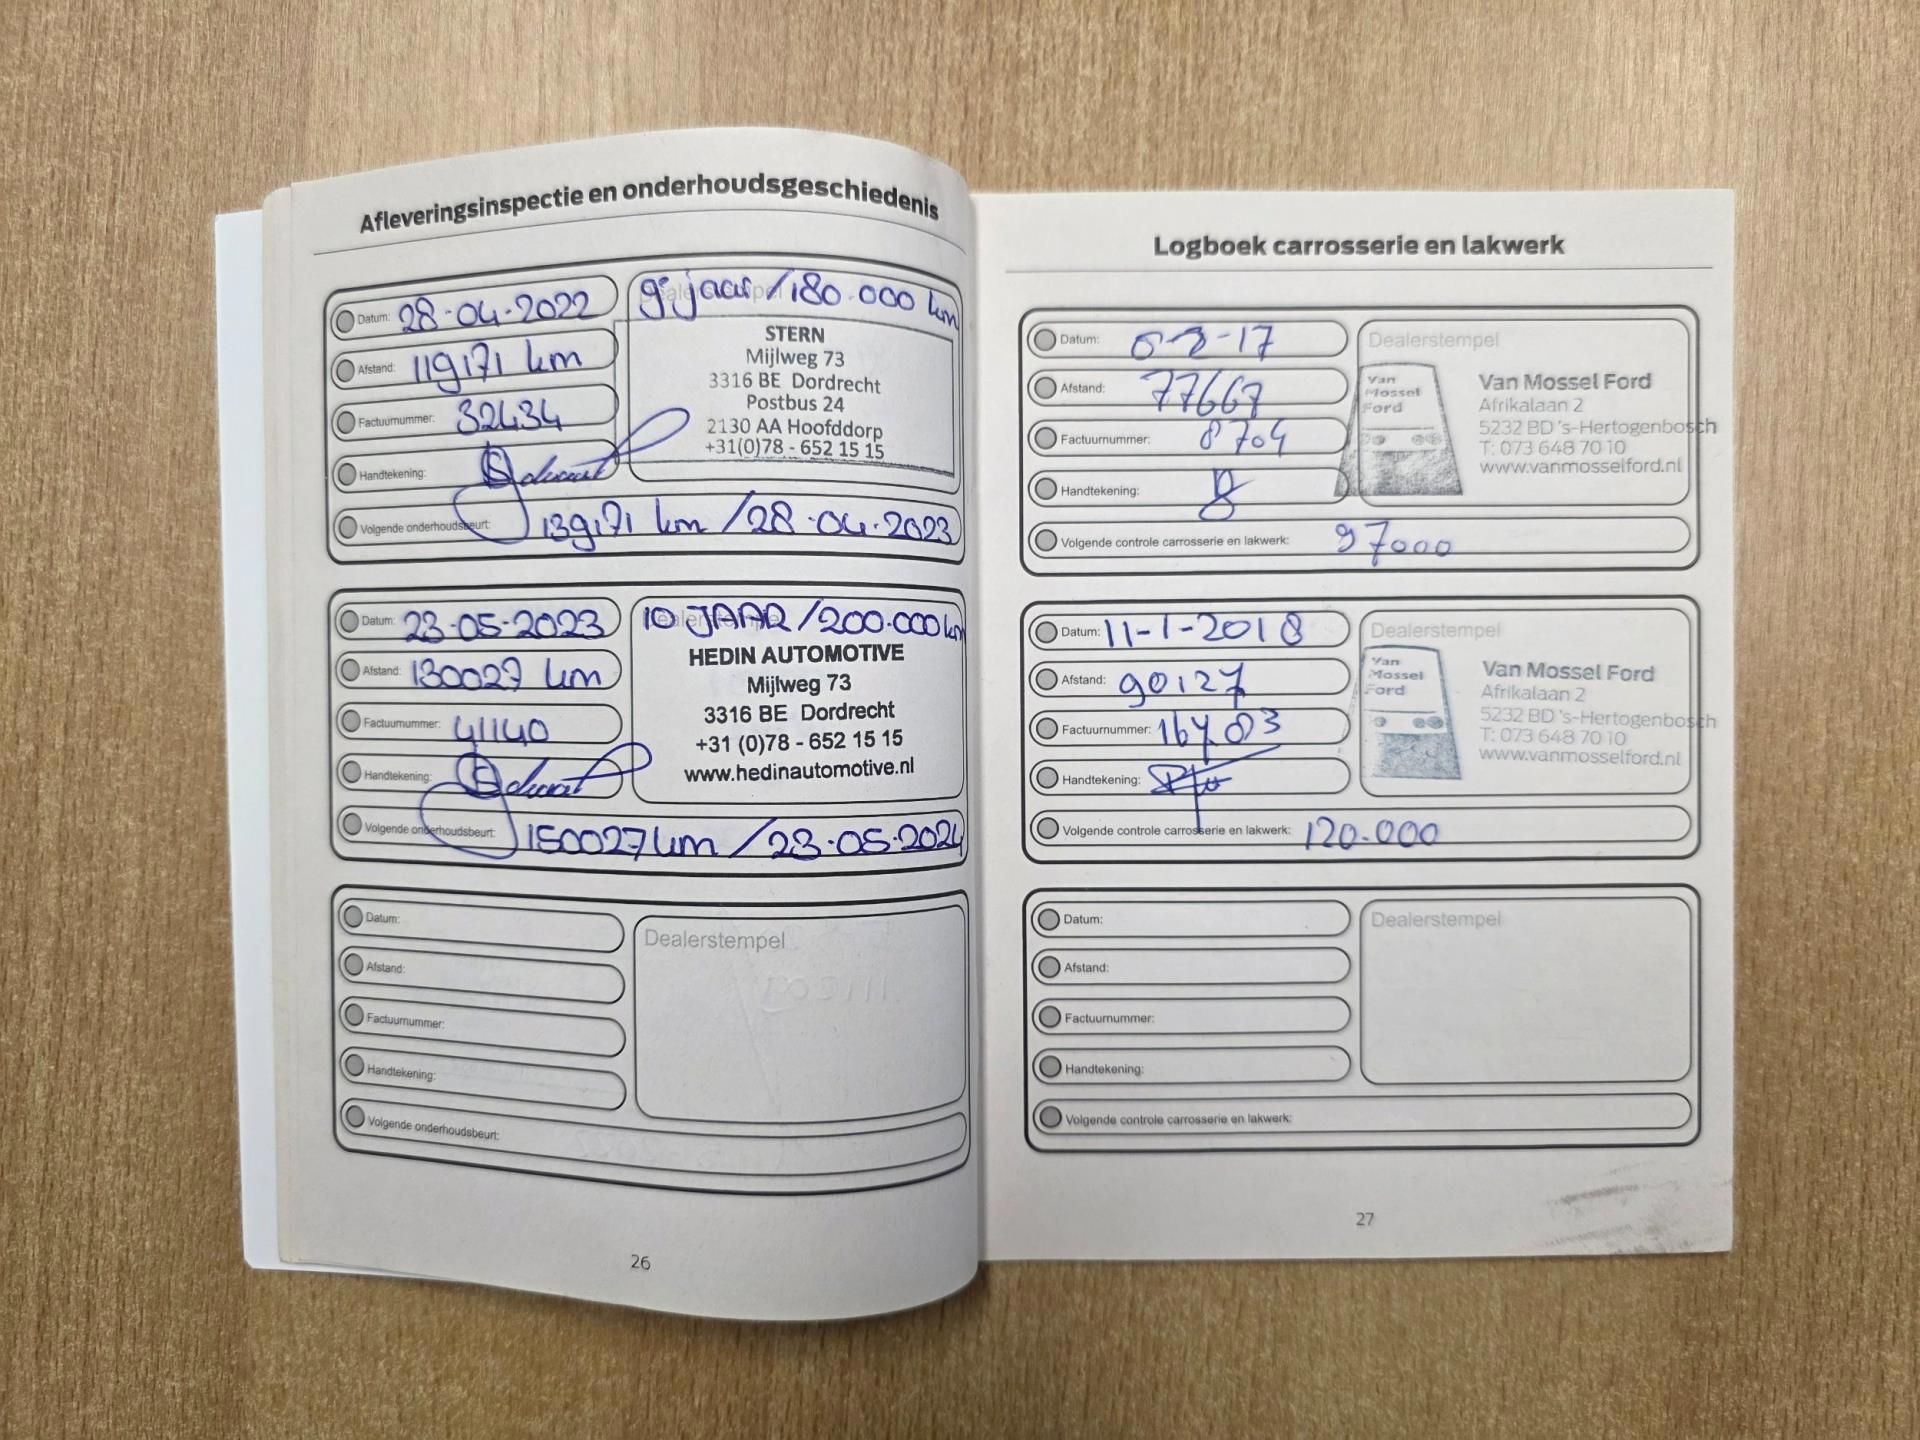 Afleveringsinspectie en onderhoudsgeschiedenis
Datum: 28-04-2022
Afstand: 119171 km
Factuurnummer: 32434
Handtekening:
Dealerstempel
9 jaar / 180.000 km
STERN
Mijlweg 73
3316 BE Dordrecht
Postbus 24
2130 AA Hoofddorp
+31(0)78 - 652 15 15
Volgende onderhoudsbeurt: 139171 km / 28-04-2023
Datum: 23-05-2023
Afstand: 130027 km
Factuurnummer: 41140
Handtekening:
Dealerstempel
10 JAAR / 200.000 km
HEDIN AUTOMOTIVE
Mijlweg 73
3316 BE Dordrecht
+31 (0)78 - 652 15 15
www.hedinautomotive.nl
Volgende onderhoudsbeurt: 150027 km / 23-05-2024
Datum:
Afstand:
Factuurnummer:
Handtekening:
Dealerstempel
Volgende onderhoudsbeurt:
26
Logboek carrosserie en lakwerk
Datum:
Afstand: 77667
Factuurnummer: 8704
Handtekening:
Dealerstempel
Van
Mossel
Ford
Van Mossel Ford
Afrikalaan 2
5232 BD 's-Hertogenbosch
T: 073 648 70 10
www.vanmosselford.nl
Volgende controle carrosserie en lakwerk: 97000
Datum: 11-1-2018
Afstand: 90127
Factuurnummer:
Handtekening:
Dealerstempel
Van
Mossel
Ford
Van Mossel Ford
Afrikalaan 2
5232 BD 's-Hertogenbosch
T: 073 648 70 10
www.vanmosselford.nl
Volgende controle carrosserie en lakwerk: 120.000
Datum:
Afstand:
Factuurnummer:
Handtekening:
Dealerstempel
Volgende controle carrosserie en lakwerk:
27